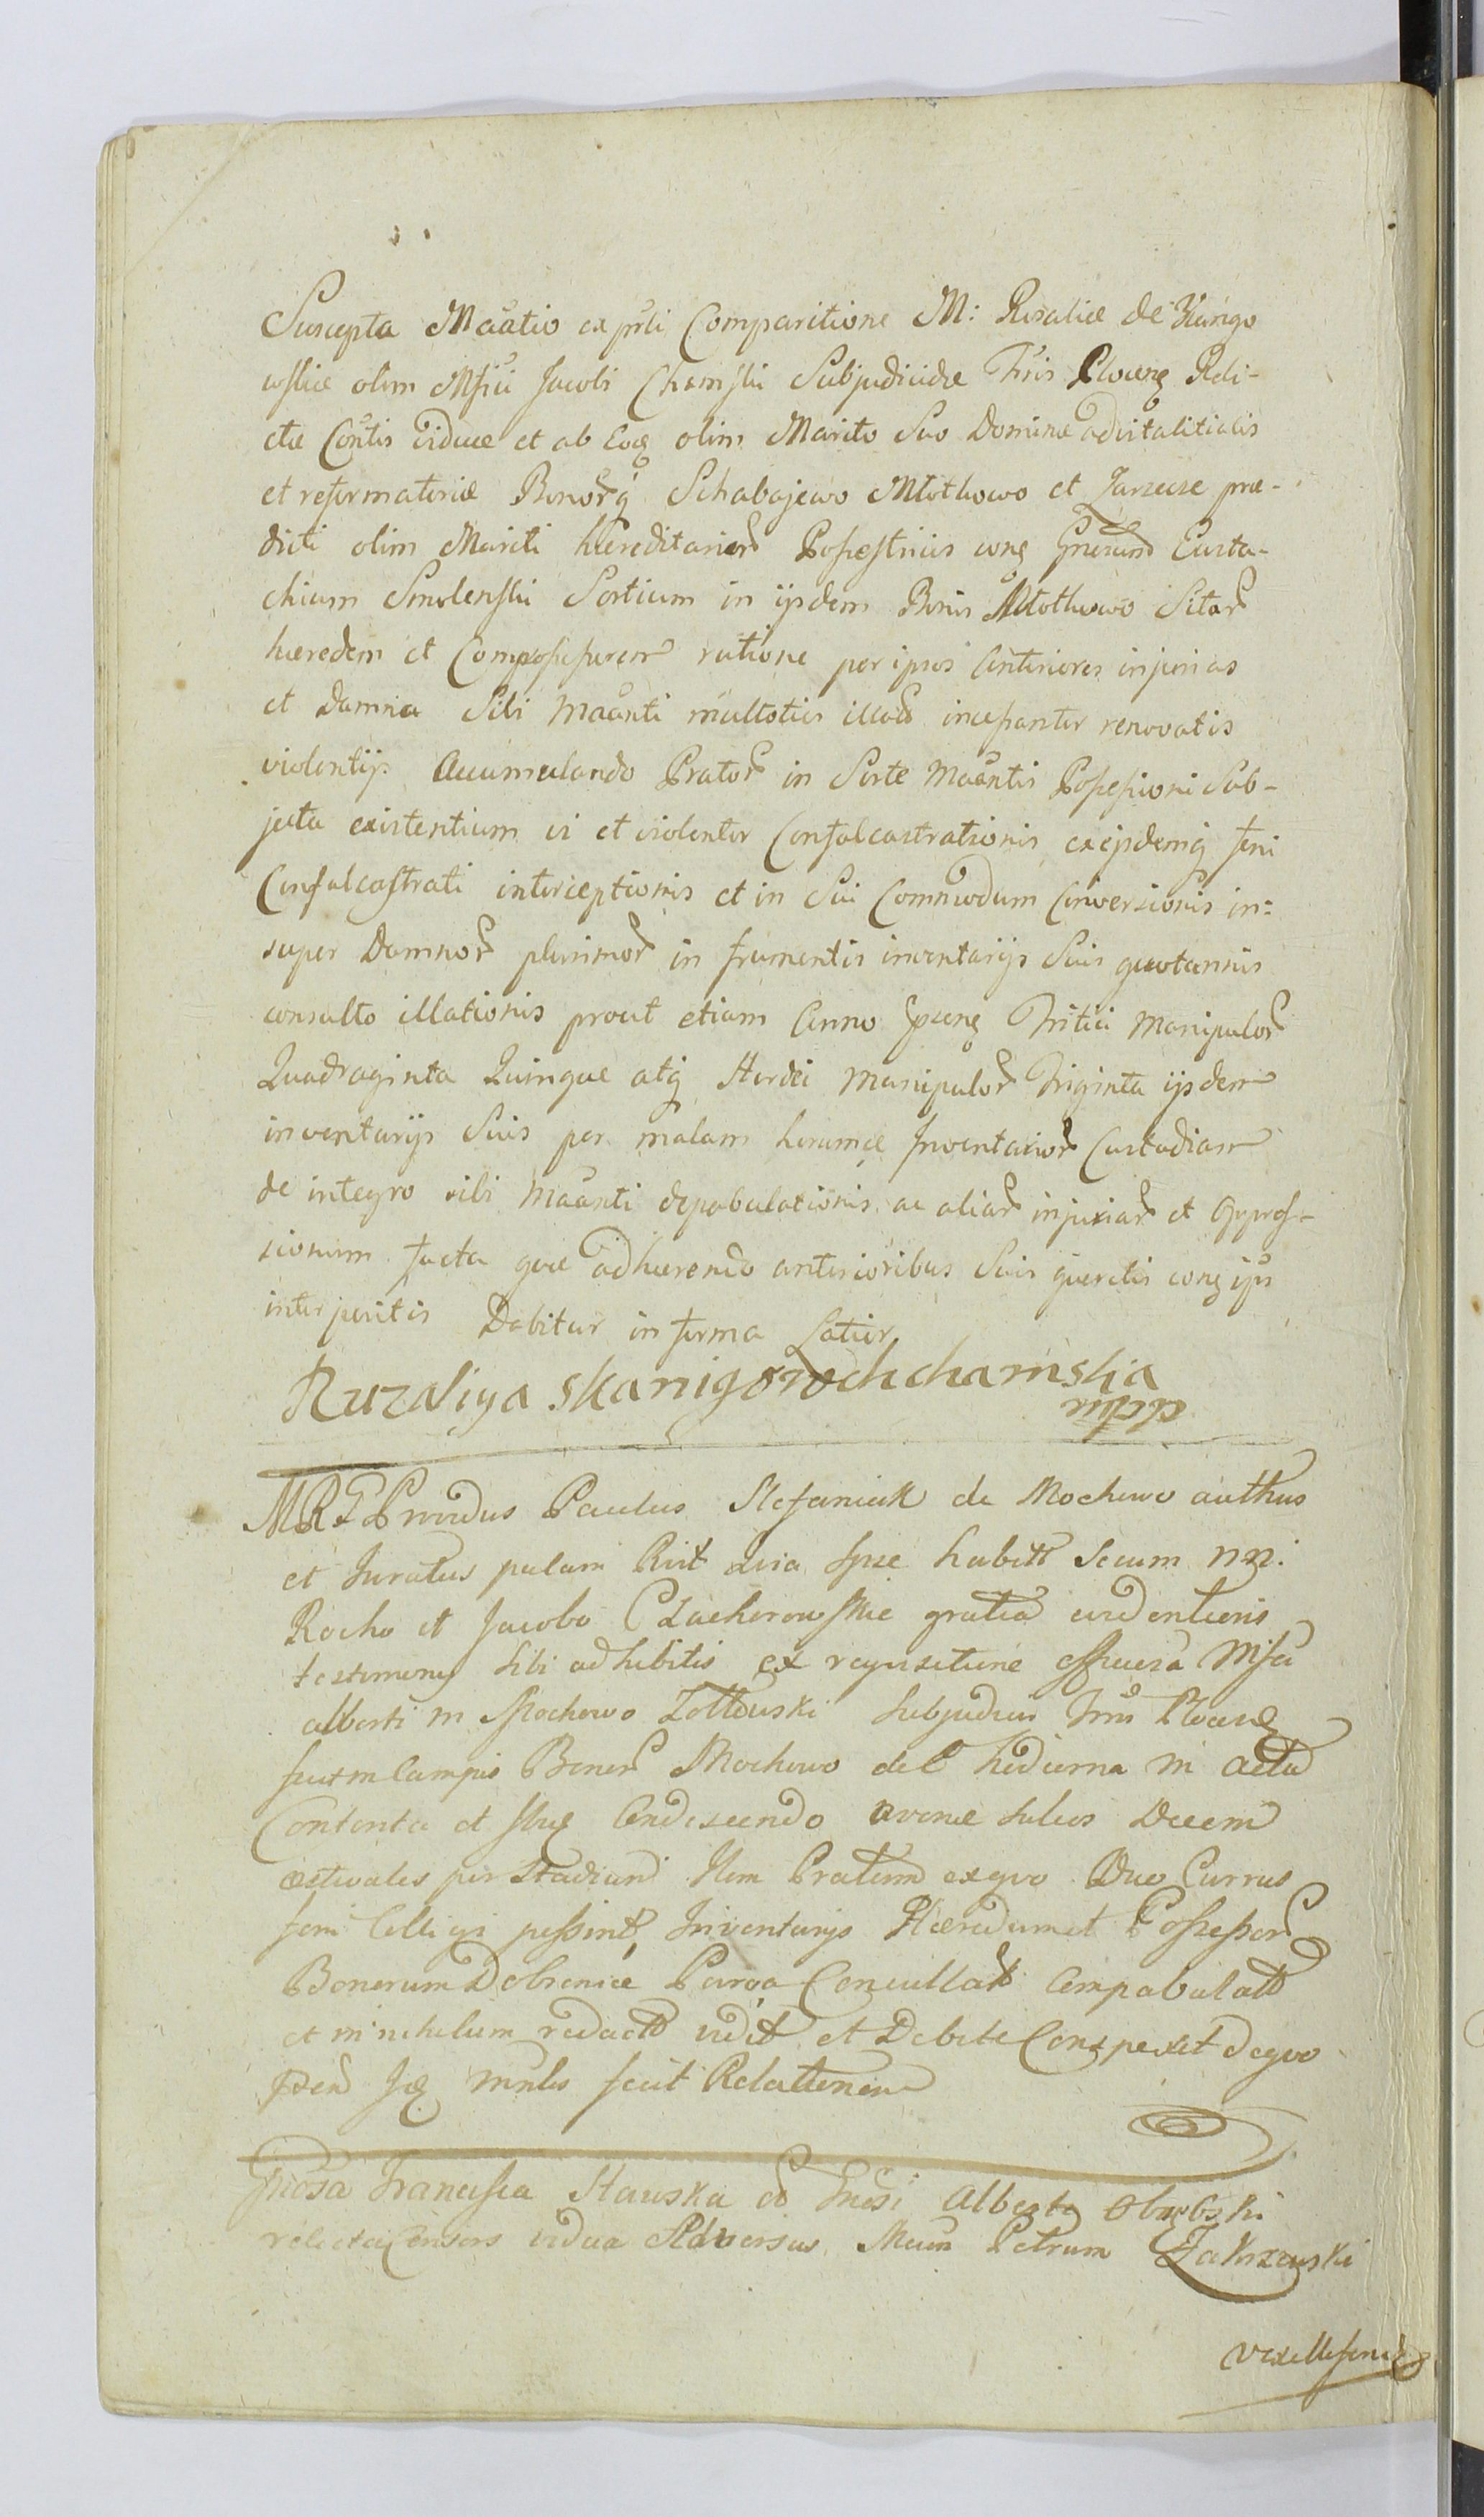 Suscepta Maãtio ex prli Comparitione M: Rosaliæ de Skarzgo
wskie olim Msfici Jacobi Chamski Subjudicidæ Tris Plocens Reli-
ctæ Contis Viduæ et ab Eoq olim Marito Suo Dominæ advitalitialis
et reformatoriæ Bonorq Schabajewo Młotkowo et Jarzecze præ-
dicti olim Mariti hæreditarior Possestricis conq Gnerund Eusta-
chium Smolenski Sortium in ijsdem Bonis Młotkowo Sitar
hæredem et Compossessorem ratione per ipsos anteriores injurias
et Damna Sibi Maãnti multoties illatas incessanter renovatis
violentijs Accumulando Prator in Sorte Maãntis Possessioni Sub-
jecta existentium vi et violenter Confalcastrationis exijsdemq feni
Confalcastrati interceptionis et in Sui Commodum Conversionis in=
super Damnor plurimor in frumentis inventarijs Suis quotannis
consulto illationis prout etiam Anno Prnq Tritici Manipulor
Quadraginta Quinque atq Hordei Manipulor Triginta ijsdem
inventarijs Suis per malam horumce Inventarior Custodiam
de integro sibi Maãnti depabulationis ac aliar injuriar et Oppres-
sionum facta quæ adhærendo anterioribus Suis querelis conq ipso
interpositis Dabitur in forma Latior
Ruzaliya skarzigowoch chamska
MRG Providus Paulus Stefaniak de Mochowo authus
et Juratus palam Rcit Quia Ipse habitt Secum nn:
Rocho et Jacobo Czachorowskie gratia evidentioris
testimony Sibi adhibitis ex requisitione Msfici
alberti in Mochowo Zółtowski Subjudicis Tris Plocens
fuit in Campis Bonor Mochowo die hodierna in Actu
Contenta et Ibiq Condescendo avenæ Sulcos Decem
æstivales per Stadiund Item Pratum ex quo Duo Currus
feni Colligi possint, Inventarijs Hæredum et Possessor
Bonorum Dobrenice Parva Conculcatt Compabulatt
et in nihilum redactt vidit et Debite Conspexit de quo
Idem Jq Mnlis fecit Relationem
Gnosa Francisca Sławska Gnosi Alberti Obrebski
relicta Consors vidua Adversus Mcum Petrum Zakrzewski
vexilliferid